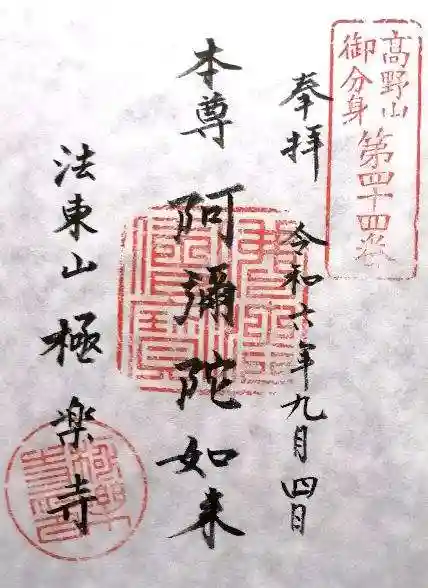 高野山
御分身
第四十四番
奉拝
令和六年九月四日
本尊
阿彌陀如来
法東山極楽寺